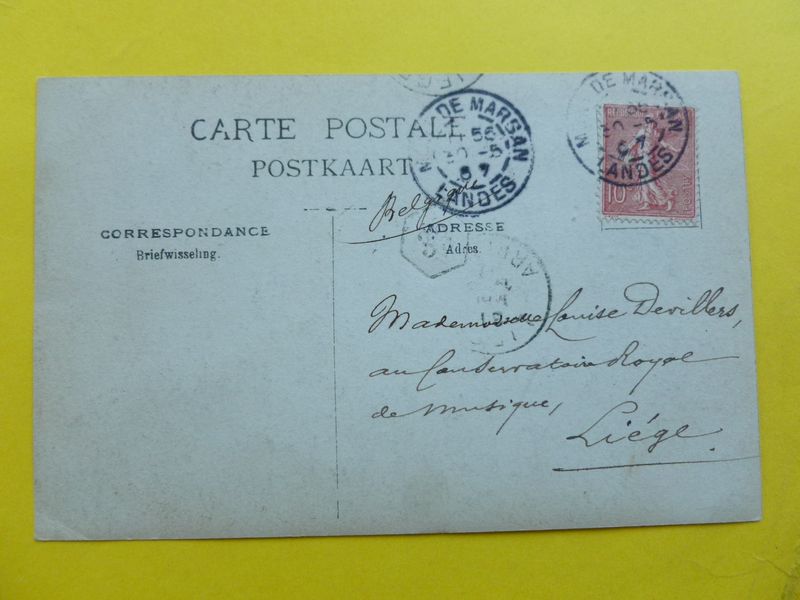 CARTE POSTALE
POSTKAART
DE MARSAN
LANDES
DE MARSAN
LANDES
10
Belgique
CORRESPONDANCE
Briefwisseling.
ADRESSE
Adres.
Mademoiselle Louise Devillers,
au Conservatoire Royal
de musique,
Liége.